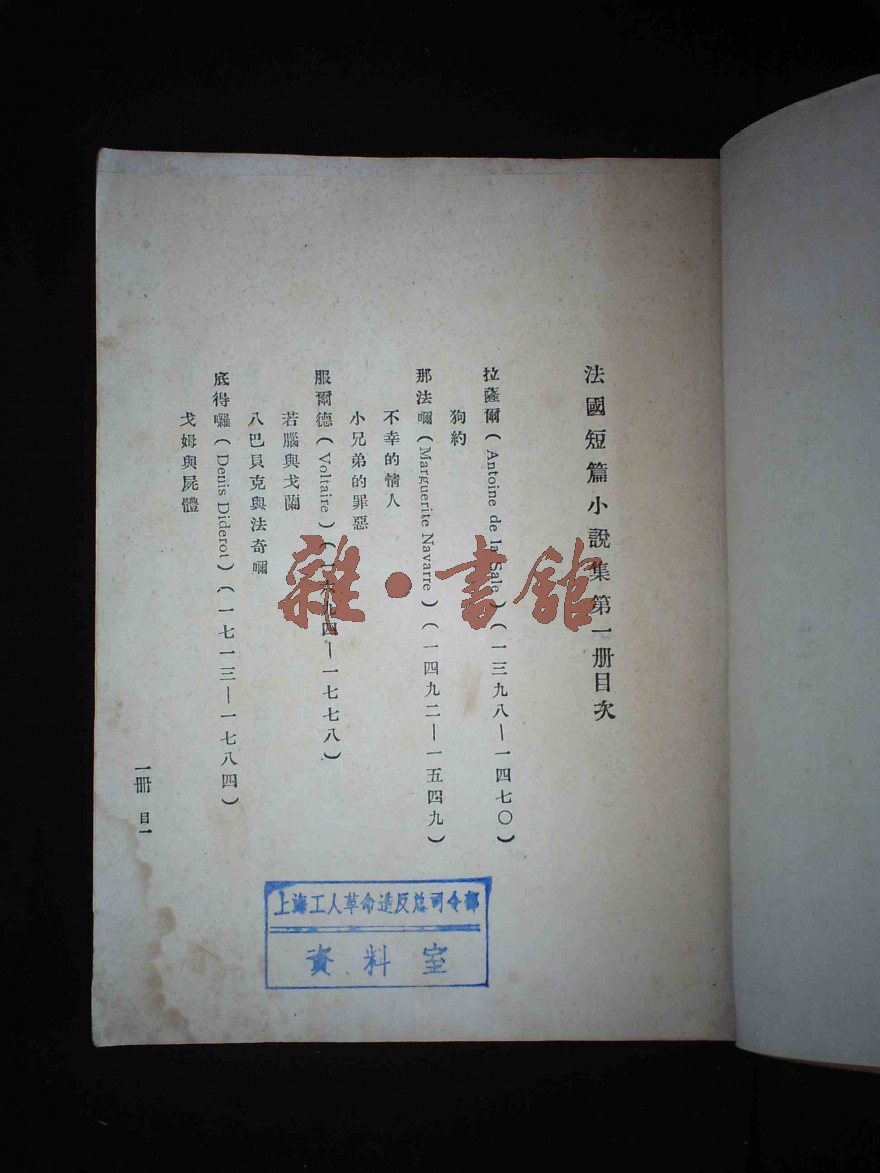 法國短篇小說集第一册目次
拉薩爾(Antoine de la Sale)(一三九八—一四七〇)
狗約
那法嚩(Marguerite Navarre)(一四九二—一五四九)
不幸的情人
小兄弟的罪惡
服爾德(Voltaire)(一六九四—一七七八)
若腦與戈蘭
八巴貝克與法奇嚩
底得囉(Denis Diderot)(一七一三—一七八四)
戈姆與屍體
一册 目一
上海工人革命造反总司令部
資料室
雜·書館